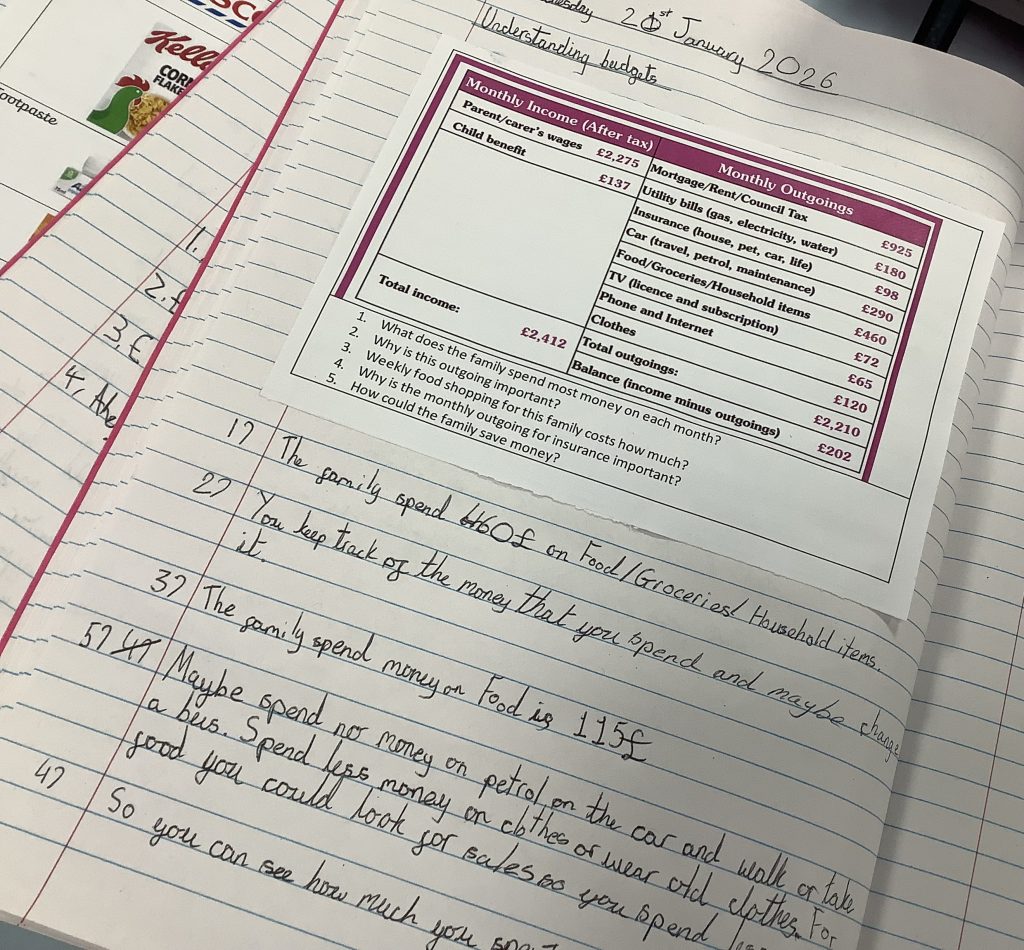 SCO
Kello
CORN
FLAKE
ootpaste
1.
2.
3.£
4,
esday 21st January 2026
Understanding budgets
Monthly Income (After tax)
Monthly Outgoings
Parent/carer's wages £2,275
Child benefit £137
Total income: £2,412
Mortgage/Rent/Council Tax £925
Utility bills (gas, electricity, water) £180
Insurance (house, pet, car, life) £98
Car (travel, petrol, maintenance) £290
Food/Groceries/Household items £460
TV (licence and subscription) £72
Phone and Internet £65
Clothes £120
Total outgoings: £2,210
Balance (income minus outgoings) £202
1. What does the family spend most money on each month?
2. Why is this outgoing important?
3. Weekly food shopping for this family costs how much?
4. Why is the monthly outgoing for insurance important?
5. How could the family save money?
1) The family spend 460£ on Food/Groceries/Household items.
2) You keep track of the money that you spend and maybe change
it.
3) The family spend money on Food is 115£
5) Maybe spend nor money on petrol, on the car and walk or take
a bus. Spend less money on clothes or wear old clothes. For
food you could look for sales so you spend
4) So you can see how much you